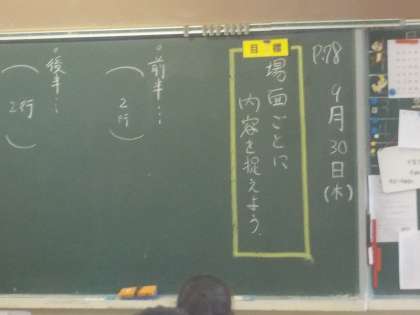 P.78 9月30日(木)
目標
場面ごとに
内容を捉えよう。
。前半…
(2行)
。後半…
(2行)